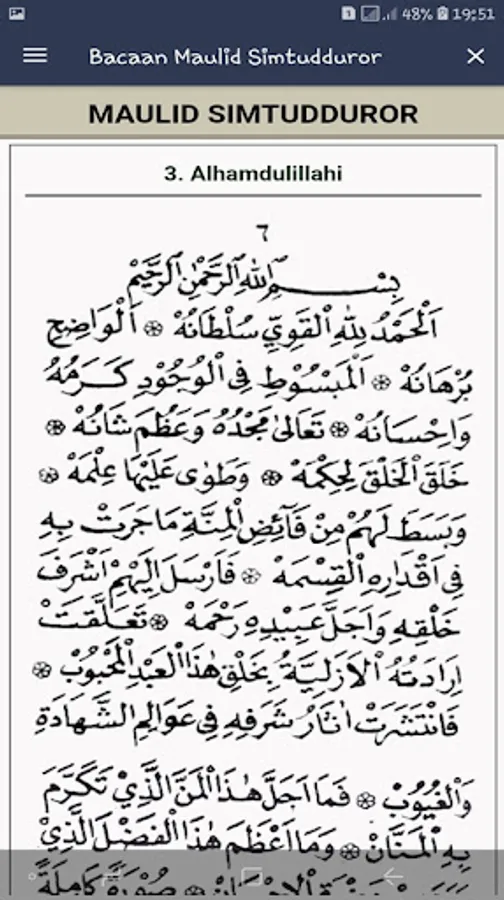 48% 19:51
Bacaan Maulid Simtudduror
MAULID SIMTUDDUROR
3. Alhamdulillahi
٦
بِسْمِ اللهِ الرَّحْمٰنِ الرَّحِيْمِ
اَلْحَمْدُ لِلّٰهِ الْقَوِيِّ سُلْطَانُهْ ۞ اَلْوَاضِحِ
بُرْهَانُهْ ۞ اَلْمَبْسُوْطِ فِى الْوُجُوْدِ كَرَمُهُ
وَاِحْسَانُهْ ۞ تَعَالىٰ مَجْدُهُ وَعَظُمَ شَانُهْ ۞
خَلَقَ الْخَلْقَ لِحِكْمَهْ ۞ وَطَوٰى عَلَيْهَا عِلْمَهْ ۞
وَبَسَطَ لَهُمْ مِنْ فَآئِضِ الْمِنَّةِ مَاجَرَتْ بِهِ
فِى اَقْدَارِهِ الْقِسْمَهْ ۞ فَاَرْسَلَ اِلَيْهِمْ اَشْرَفَ
خَلْقِهِ وَاَجَلَّ عَبِيْدِهِ رَحْمَهْ ۞ تَعَلَّقَتْ
اِرَادَتُهُ الْاَزَلِيَّةُ بِخَلْقِ هٰذَا الْعَبْدِ الْمَحْبُوْبْ ۞
فَانْتَشَرَتْ اٰثَارُ شَرَفِهِ فِى عَوَالِمِ الشَّهَادَةِ
وَالْغُيُوْبْ ۞ فَمَا اَجَلَّ هٰذَا الْمَنَّ الَّذِيْ تَكَرَّمَ
بِهِ الْمَنَّانْ ۞ وَمَا اَعْظَمَ هٰذَا الْفَضْلَ الَّذِيْ
صُوْرَةً كَامِلَةً